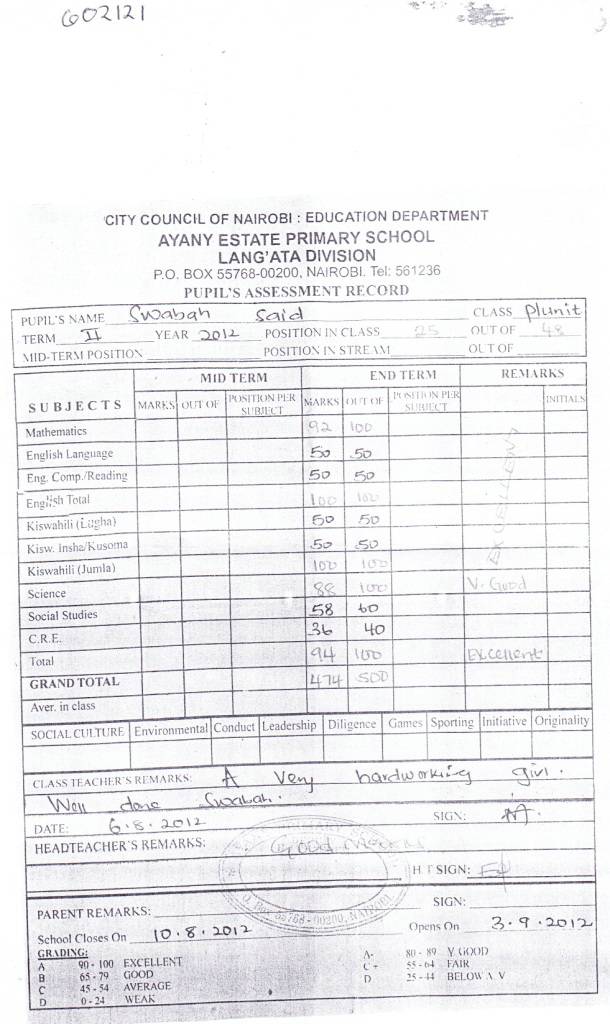 602121
CITY COUNCIL OF NAIROBI : EDUCATION DEPARTMENT
AYANY ESTATE PRIMARY SCHOOL
LANG'ATA DIVISION
P.O. BOX 55768-00200, NAIROBI. Tel: 561236
PUPIL'S ASSESSMENT RECORD
PUPIL'S NAME Swabah Said CLASS plunit
TERM II YEAR 2012 POSITION IN CLASS 25 OUT OF 48
MID-TERM POSITION POSITION IN STREAM OUT OF
MID TERM END TERM REMARKS
SUBJECTS MARKS OUT OF POSITION PER SUBJECT MARKS OUT OF POSITION PER SUBJECT INITIALS
Mathematics 92 100
English Language 50 50
Eng. Comp./Reading 50 50
English Total 100 100
Kiswahili (Lugha) 50 50
Kisw. Insha/Kusoma 50 50
Kiswahili (Jumla) 100 100
EXCELLENT
Science 88 100 V. Good
Social Studies 58 60
C.R.E. 36 40
Total 94 100 Excellent
GRAND TOTAL 474 500
Aver. in class
SOCIAL CULTURE Environmental Conduct Leadership Diligence Games Sporting Initiative Originality
CLASS TEACHER'S REMARKS: A very hardworking girl.
Well done Swabah.
DATE: 6.8.2012 SIGN:
HEADTEACHER'S REMARKS: Good
H.T SIGN:
PARENT REMARKS: SIGN:
Box 55768-00200, NAIROBI
School Closes On 10.8.2012 Opens On 3.9.2012
GRADING:
A 90 - 100 EXCELLENT A- 80 - 89 V. GOOD
B 65 - 79 GOOD C+ 55 - 64 FAIR
C 45 - 54 AVERAGE D 25 - 44 BELOW A V
D 0 - 24 WEAK